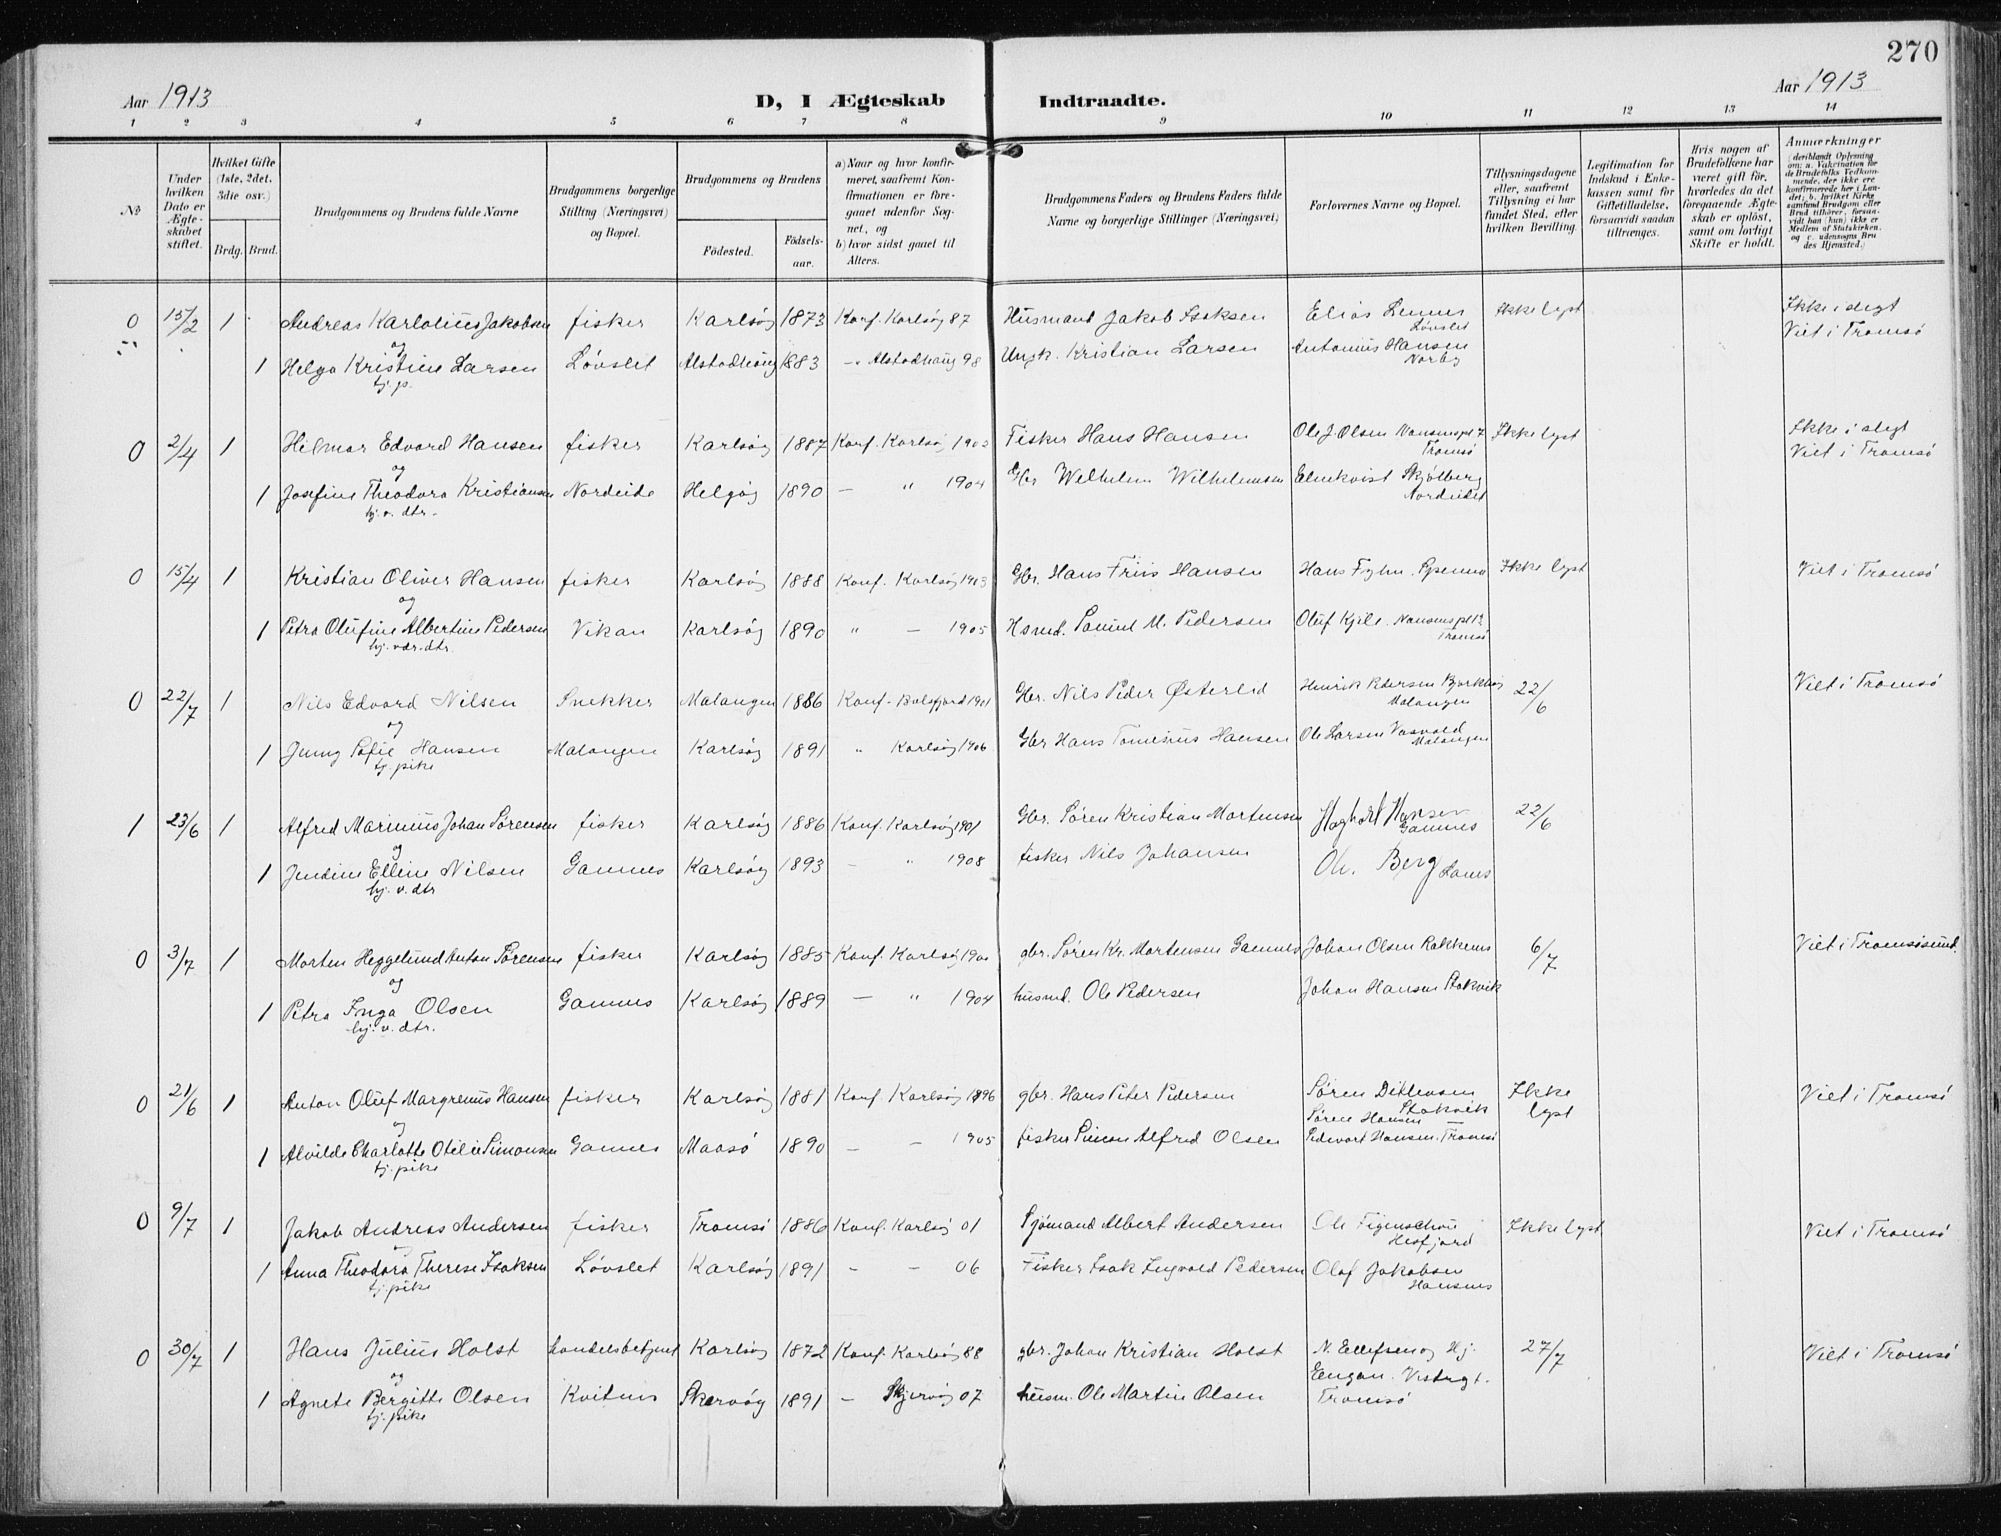 270
Aar 1913
D, I Ægteskab Indtraadte.
Aar 1913
1 2 3 4 5 6 7 8 9 10 11 12 13 14
№
Under hvilken Dato er Ægteskabet stiftet.
Hvilket Gifte (1ste, 2det, 3die osv.)
Brdg. Brud.
Brudgommens og Brudens fulde Navne
Brudgommens borgerlige Stilling (Næringsvei) og Bopæl.
Brudgommens og Brudens
Fødested.
Fødselsaar.
a) Naar og hvor konfirmeret, saafremt Konfirmationen er foregaaet udenfor Sognet, og
b) hvor sidst gaaet til Alters.
Brudgommens Faders og Brudens Faders fulde Navne og borgerlige Stillinger (Næringsvei)
Forlovernes Navne og Bopæl.
Tillysningsdagene eller, saafremt Tillysning ei har fundet Sted, efter hvilken Bevilling.
Legitimation for Indskud i Enkekassen samt for Giftetilladelse, forsaavidt saadan tiltrænges.
Hvis nogen af Brudefolkene har været gift før, hvorledes da det foregaaende Ægteskab er opløst, samt om lovligt Skifte er holdt.
Anmærkninger
(deriblandt Oplysning om: a. Vakcination for de Brudefolks Vedkommende, der ikke ere konfirmerede her i Landet; b. hvilket Kirkesamfund Brudgom eller Brud tilhører, forsaavidt han (hun) ikke er Medlem af Statskirken. og c. udensogns Brudes Hjemsted.)
0 15/2 1 Andreas Karlotius Jakobsen fisker Karlsøy 1873 Konf. Karlsøy 87 Husmand Jakob Isaksen Elias Lennes Løvslet Ikke lyst Ikke i slegt
og Viet i Tromsø
1 Helga Kristine Larsen Løvslet Alstadhaug 1883 -"- Alstadhaug 98 Ungk. Kristian Larsen Antonius Hansen Norby
tj. p.
0 2/4 1 Hilmar Edvard Hansen fisker Karlsøy 1887 Konf. Karlsøy 1902 Fisker Hans Hansen Ole J. Olsen Nansenspl 7 Tromsø Ikke lyst Ikke i slegt
og Viet i Tromsø
1 Josefine Theodora Kristiansen Nordeide Helgøy 1890 — " 1904 Gbr Welhelm Wilhelmsen Elmkvist Skjølberg Nordeidet
hj. v. dtr.
0 15/4 1 Kristian Oliver Hansen fisker Karlsøy 1888 Konf. Karlsøy 1903 Gbr. Hans Friis Hansen Hans Fyhn. Ikke lyst Viet i Tromsø
og
1 Petra Olufine Albertine Pedersen Vikan Karlsøy 1890 " — 1905 Hsmd. M. Pedersen Oluf Kjile. Nansenspl Tromsø
hj. vær. dtr.
0 22/7 1 Nils Edvard Nilsen Snekker Malangen 1886 Konf. Balsfjord 1901 Gbr. Nils Peder Østerlid Henrik Pedersen Malangen 22/6 Viet i Tromsø
og
1 Jenny Sofie Hansen Malangen Karlsøy 1891 " Karlsøy 1906 Gbr Hans Tomesius Hansen Ole Larsen Malangen
tj. pike
1 23/6 1 Alfred Marinius Johan Sørensen fisker Karlsøy 1886 Konf. Karlsøy 1901 Gbr. Søren Kristian Mortensen Gamnes 22/6
og
1 Jendine Elline Nilsen Gamnes Karlsøy 1893 — " 1908 fisker Nils Johansen Ol. Berg
hj. v. dtr
0 3/7 1 Morten Heggelund Anton Sørensen fisker Karlsøy 1885 Konf. Karlsøy 1900 gbr. Søren Kr. Mortensen Gamnes Johan Olsen Rakkenes 6/7 Viet i Tromsøsund.
og
1 Petra Inga Olsen Gamnes Karlsøy 1889 — " 1904 husmd. Ole Pedersen Johan Hansen Stakvik
hj. v. dtr.
0 21/6 1 Anton Oluf Margrenius Hansen fisker Karlsøy 1881 Konf. Karlsøy 1896 gbr. Hans Peter Pedersen Søren Ditlevsen Stakvik Ikke lyst Viet i Tromsø
og Søren Hansen
1 Alvilde Charlotte Otelie Simonsen Gamnes Maasø 1890 — — 1905 fisker Simon Alfred Olsen Pedevart Hansen. Tromsø
tj. pike
0 9/7 1 Jakob Andreas Andersen fisker Tromsø 1886 Konf. Karlsøy 01 Sjømand Albert Andersen Ole Figenschou Hesfjord Ikke lyst Viet i Tromsø
og
1 Anna Theodora Therese Isaksen Løvslet Karlsøy 1891 — — 06 Fisker Isak Ingvald Pedersen Olaf Jakobsen Hansnes
tj. pike
0 30/7 1 Hans Julius Holst handelsbetjent Karlsøy 1872 Konf. Karlsøy 88 gbr. Johan Kristian Holst N. Ellefsen og Hj. 27/7 Viet i Tromsø
og Eengan. Vestregt.
1 Agnete Bergitte Olsen Kvitnes Skervøy 1891 — Skjervøy 07 husm. Ole Martin Olsen Tromsø
tj. pike